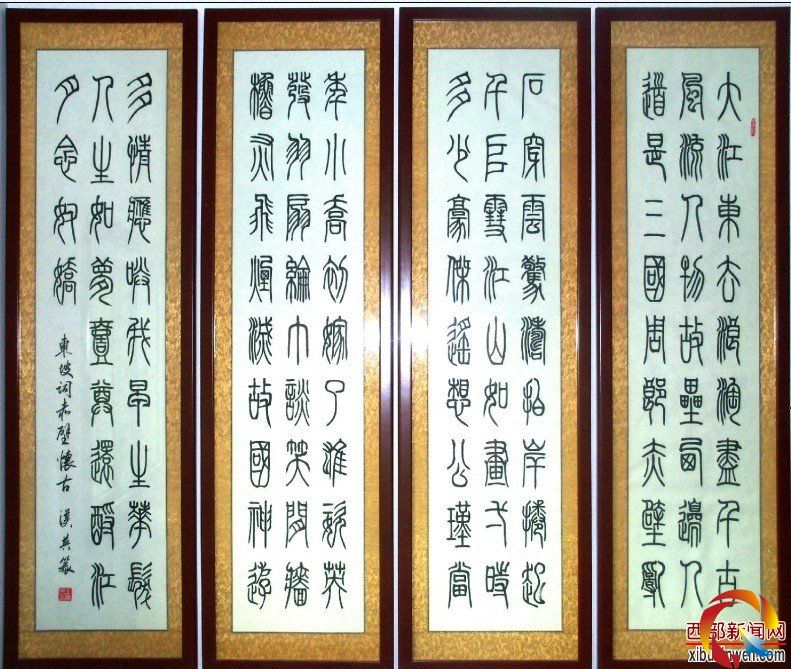 大江東去浪淘盡千古
風流人物故壘西邊人
道是三國周郎赤壁亂
石穿雲驚濤拍岸捲起
千𠂤雪江山如畫弌時
多少豪傑遙想公瑾當
年小喬初嫁了雄姿英
發羽扇綸巾談笑間牆
櫓灰飛煙滅故國神遊
多情應咲我早生華髮
人生如夢壹尊還酹江
月念奴嬌
東坡詞赤壁懷古
西部新闻网